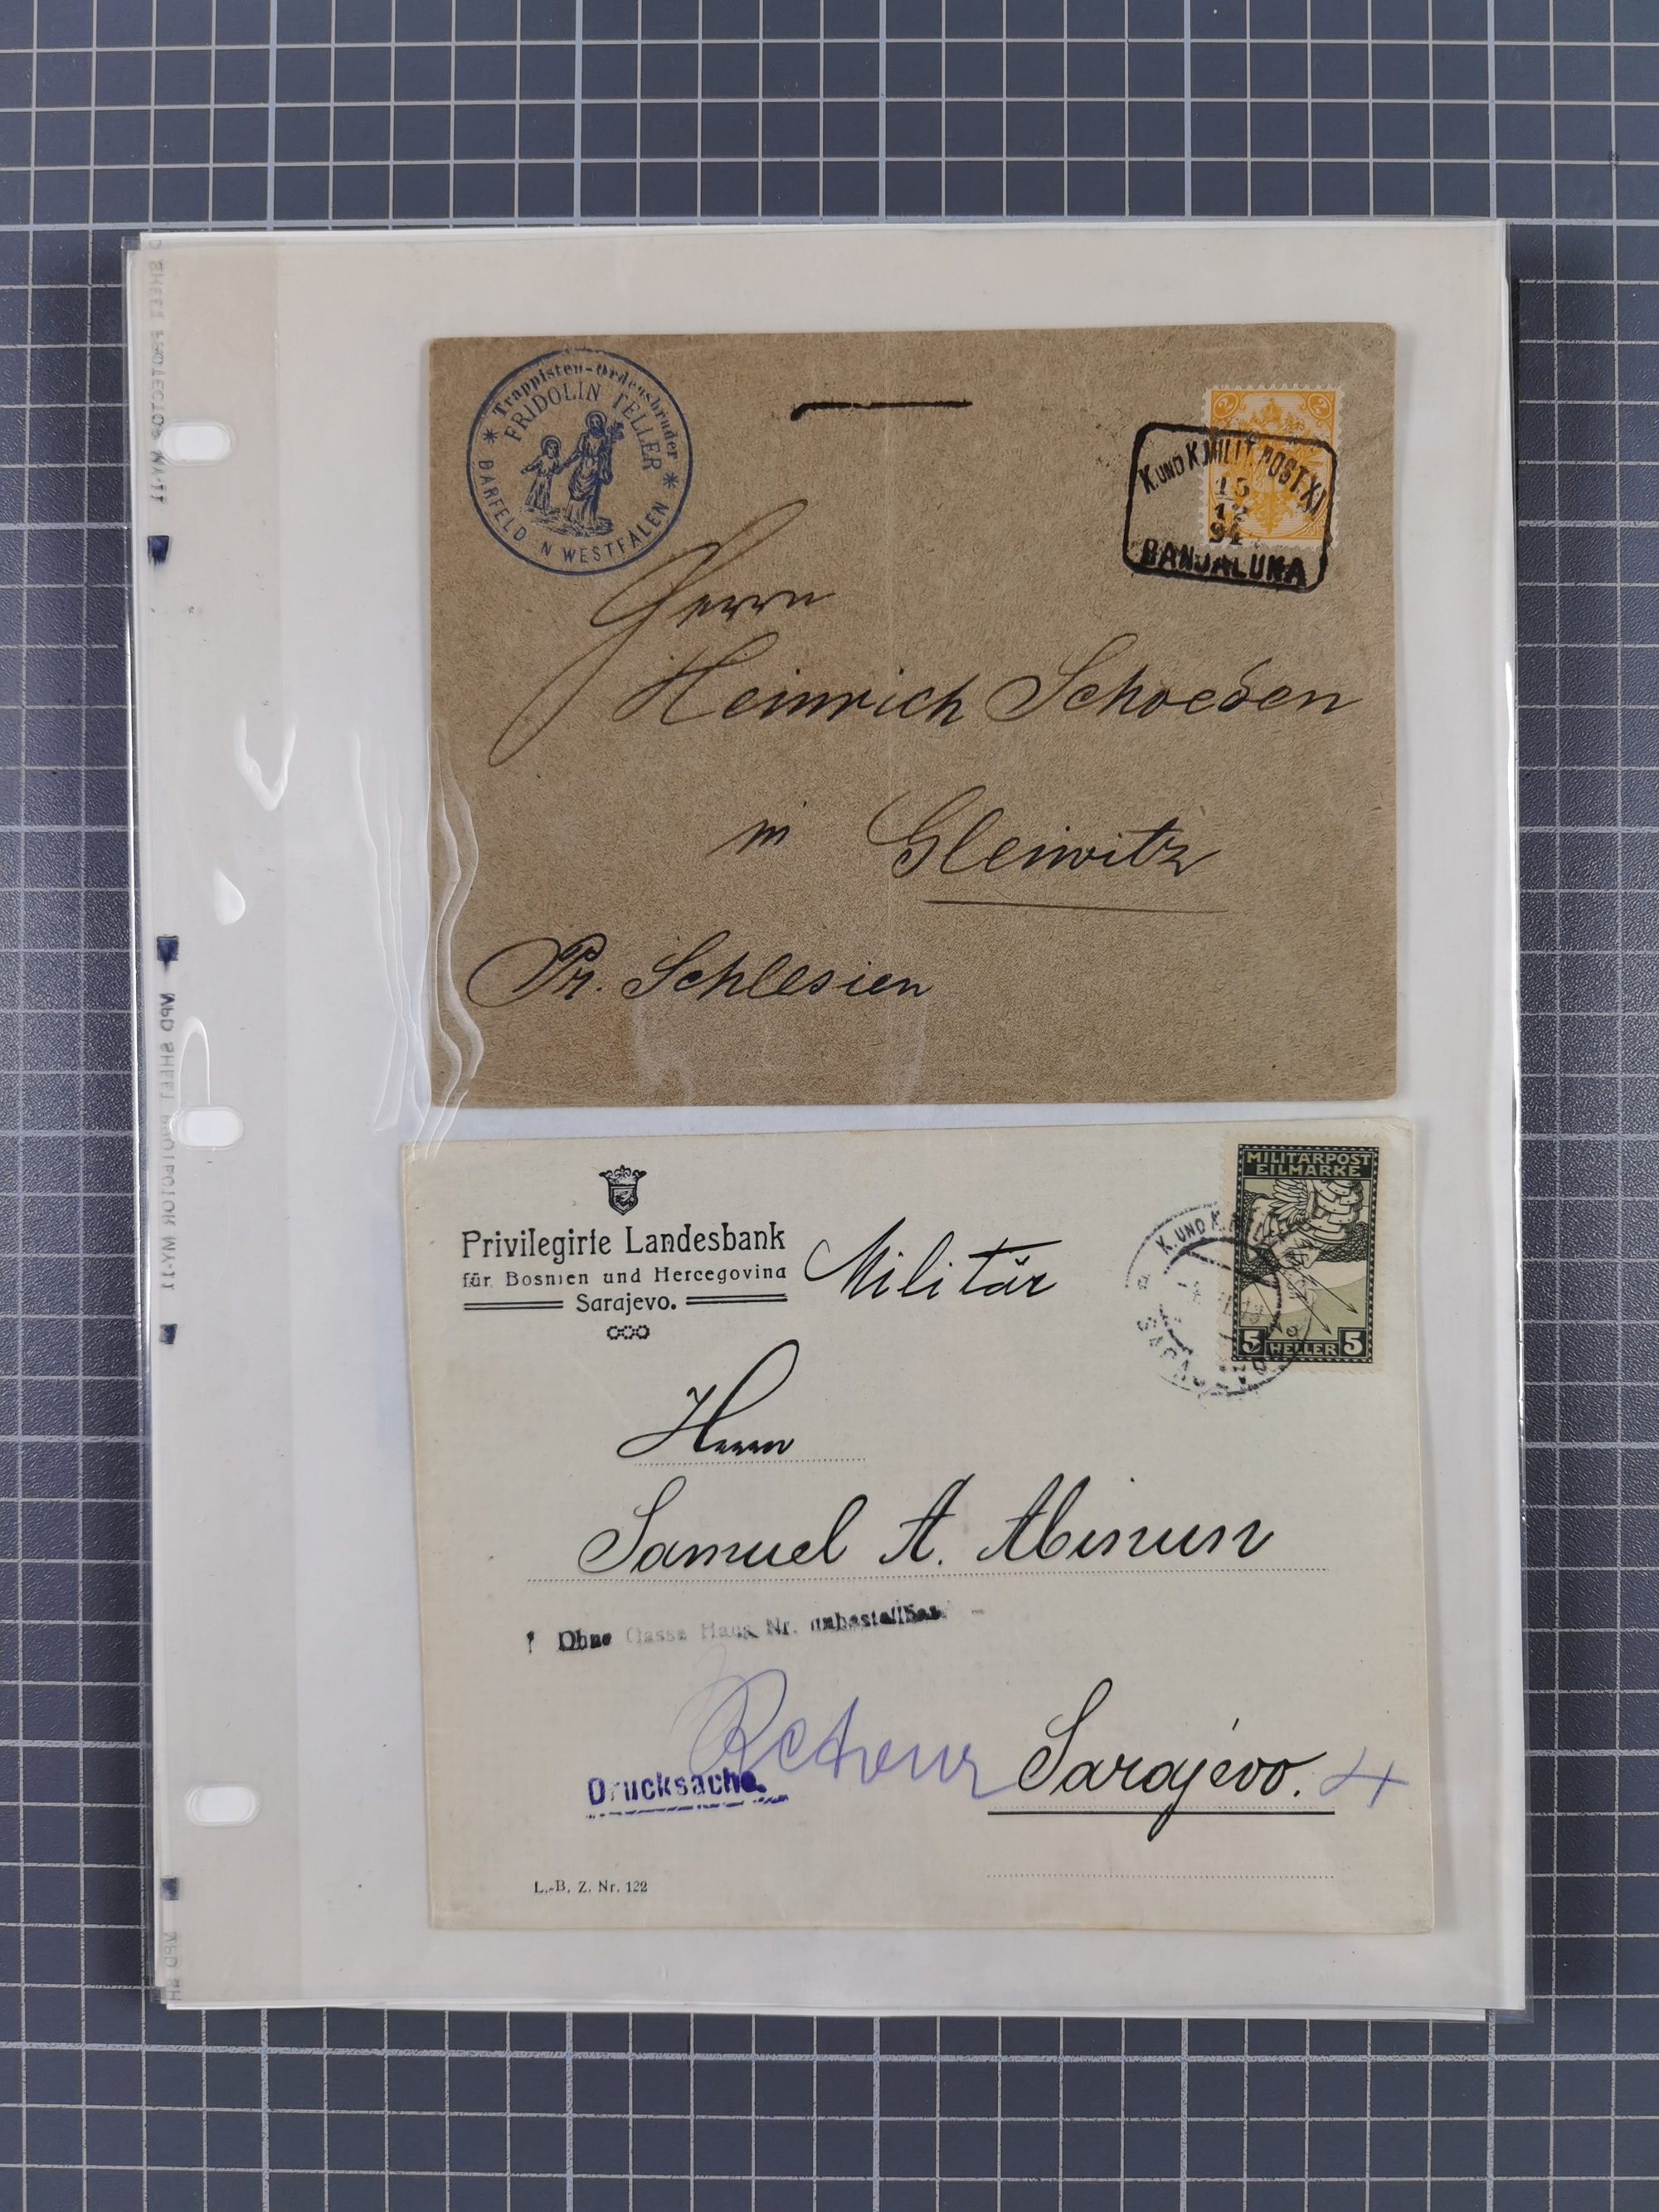 * Trappisten-Ordensbruder *
FRIDOLIN TELLER
DARFELD N WESTFALEN
2 2
K. UND K. MILIT. POST. XI
15
12
94
BANJALUKA
Herrn
Heinrich Schoeden
in Gleiwitz
Pr. Schlesien
MILITÄRPOST
EILMARKE
5 HELLER 5
K. UND K.
Privilegirte Landesbank
für Bosnien und Hercegovina
Sarajevo.
Militär
Herrn
Samuel A. Abinun
Ohne Gasse Haus Nr. unbestellbar
Retour
Sarajevo. 4
Drucksache.
L.-B. Z. Nr. 122